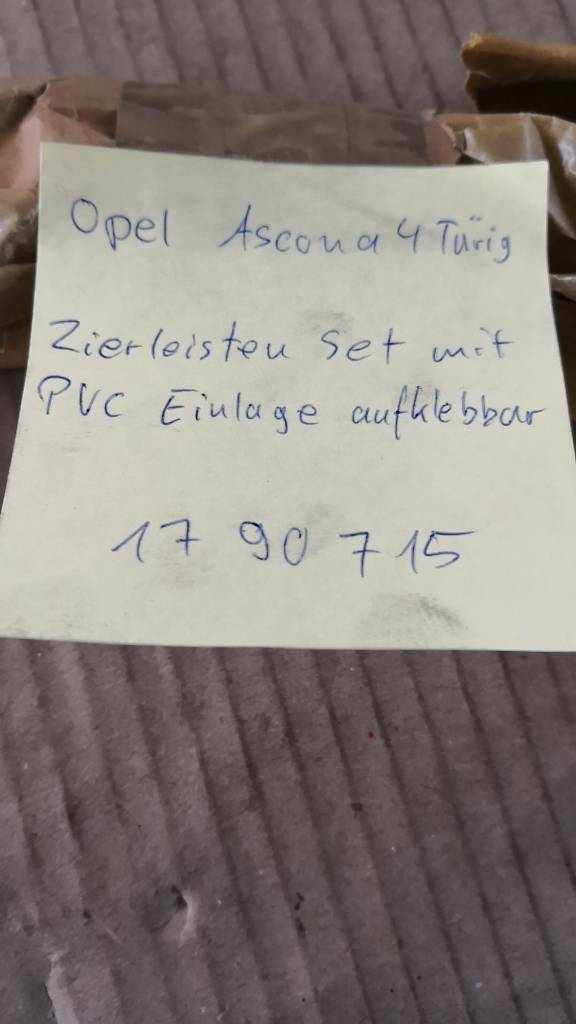 Opel Ascona 4 Türig
Zierleisten Set mit
PVC Einlage aufklebbar
17 90 715